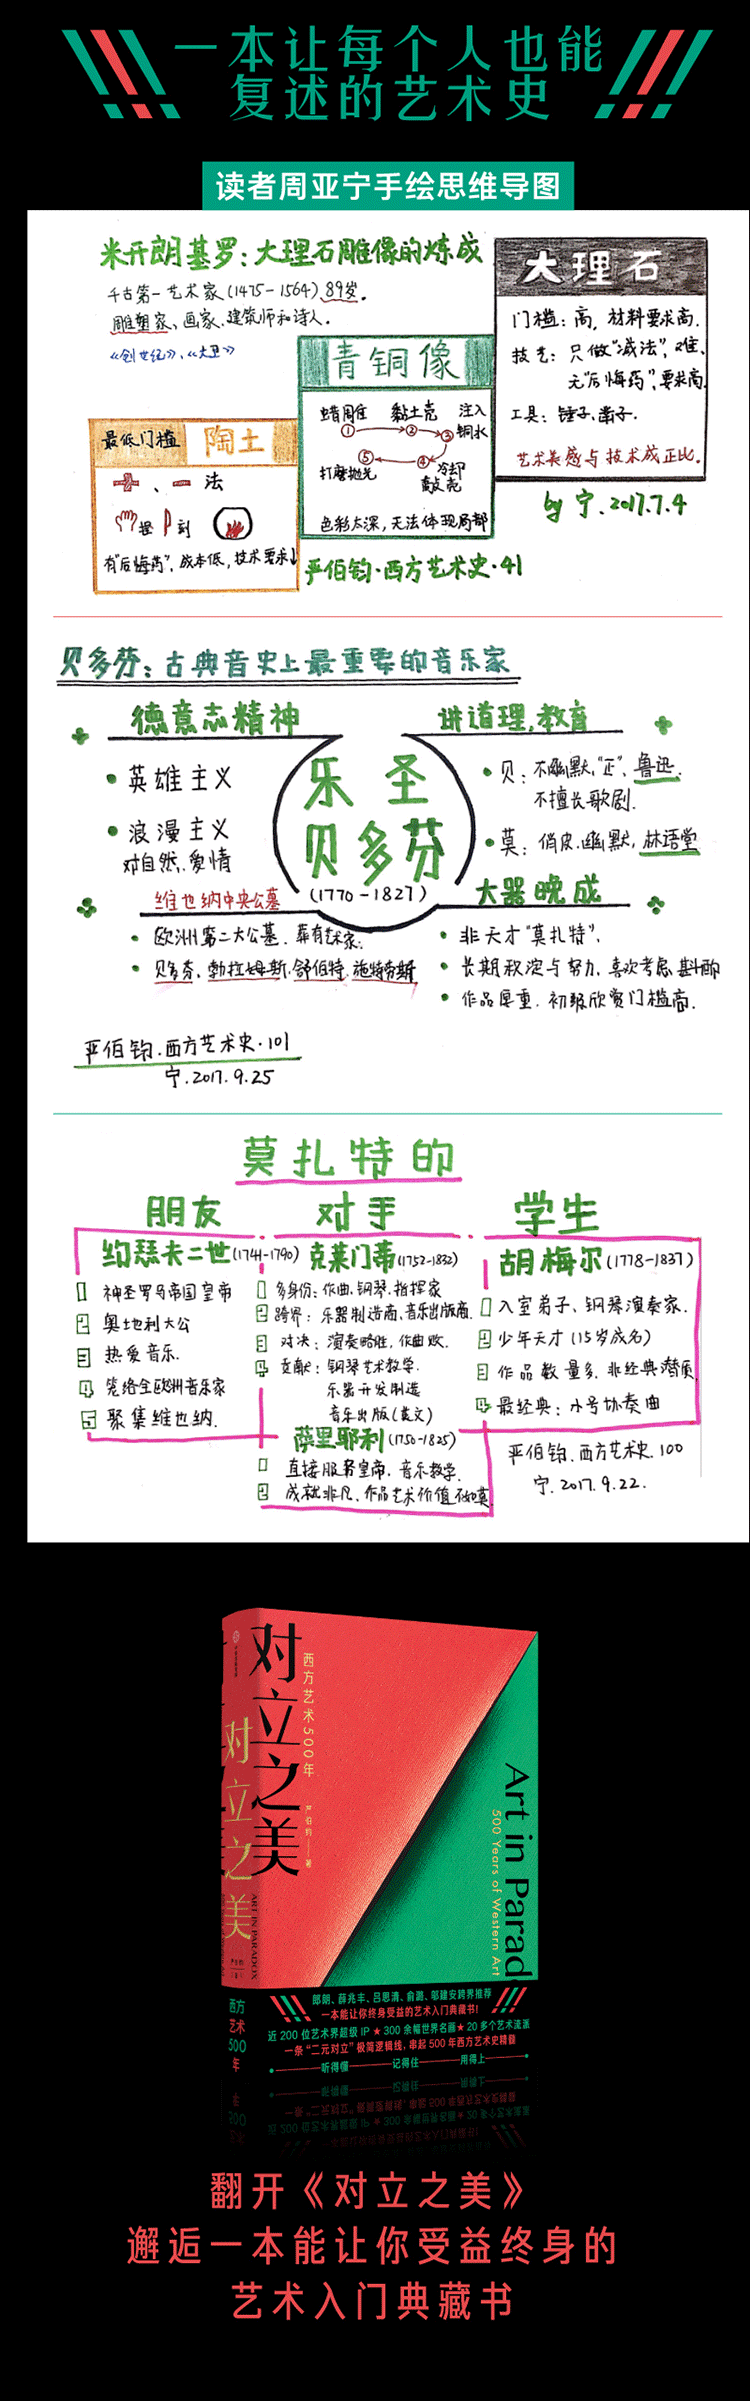 一本让每个人也能
复述的艺术史
读者周亚宁手绘思维导图
米开朗基罗：大理石雕像的炼成
千古第一艺术家(1475-1564)89岁。
雕塑家、画家、建筑师和诗人。
《创世纪》、《大卫》
大理石
门槛：高，材料要求高.
技艺：只做“减法”，难、
无“后悔药”，要求高.
工具：锤子、凿子.
艺术美感与技术成正比.
by 宁.2017.7.4
青铜像
蜡雕
①
黏土壳
②
注入
③铜水
④冷却
敲壳
⑤
打磨抛光
色彩太深，无法体现局部
最低门槛 陶土
＋、－法
捏 到
有“后悔药”，成本低，技术要求↓
严伯钧·西方艺术史·41
贝多芬：古典音史上最重要的音乐家
德意志精神
英雄主义
浪漫主义
对自然、爱情
乐圣
贝多芬
(1770-1827)
讲道理，教育
贝：不幽默，“正”，鲁迅.
不擅长歌剧.
莫：俏皮.幽默，林语堂
维也纳中央公墓
欧洲第二大公墓.葬有艺术家：
贝多芬、勃拉姆斯.舒伯特.施特劳斯
大器晚成
非天才“莫扎特”，
长期积淀与努力、喜欢考虑、斟酌
作品厚重.初级欣赏门槛高.
严伯钧.西方艺术史·101
宁.2017.9.25
莫扎特的
朋友 对手 学生
约瑟夫二世(1741-1790)
1 神圣罗马帝国皇帝
2 奥地利大公
3 热爱音乐.
4 笼络全欧洲音乐家
5 聚集维也纳.
克莱门蒂(1752-1832)
1 多身份：作曲、钢琴、指挥家
2 跨界：乐器制造商、音乐出版商.
3 对决：演奏略胜，作曲败.
4 贡献：钢琴艺术教学.
乐器开发制造
音乐出版(英文)
萨里耶利(1750-1825)
1 直接服务皇帝，音乐教学.
2 成就非凡、作品艺术价值不如莫.
胡梅尔(1778-1837)
1 入室弟子、钢琴演奏家.
2 少年天才(15岁成名)
3 作品数量多.非经典潜质.
4 最经典：小号协奏曲
严伯钧.西方艺术史.100
宁.2017.9.22.
对立之美
西方艺术500年
严伯钧 著
Art in Parad
500 Years of Western Art
对立之美
ART IN PARADOX
西方
艺术
500
年
郎朗、薛兆丰、吕思清、俞潞、邬建安跨界推荐
一本能让你终身受益的艺术入门典藏书！
近200位艺术界超级IP★300余幅世界名画★20多个艺术流派
一条“二元对立”极简逻辑线，串起500年西方艺术史精髓
听得懂 记得住 用得上
翻开《对立之美》
邂逅一本能让你受益终身的
艺术入门典藏书